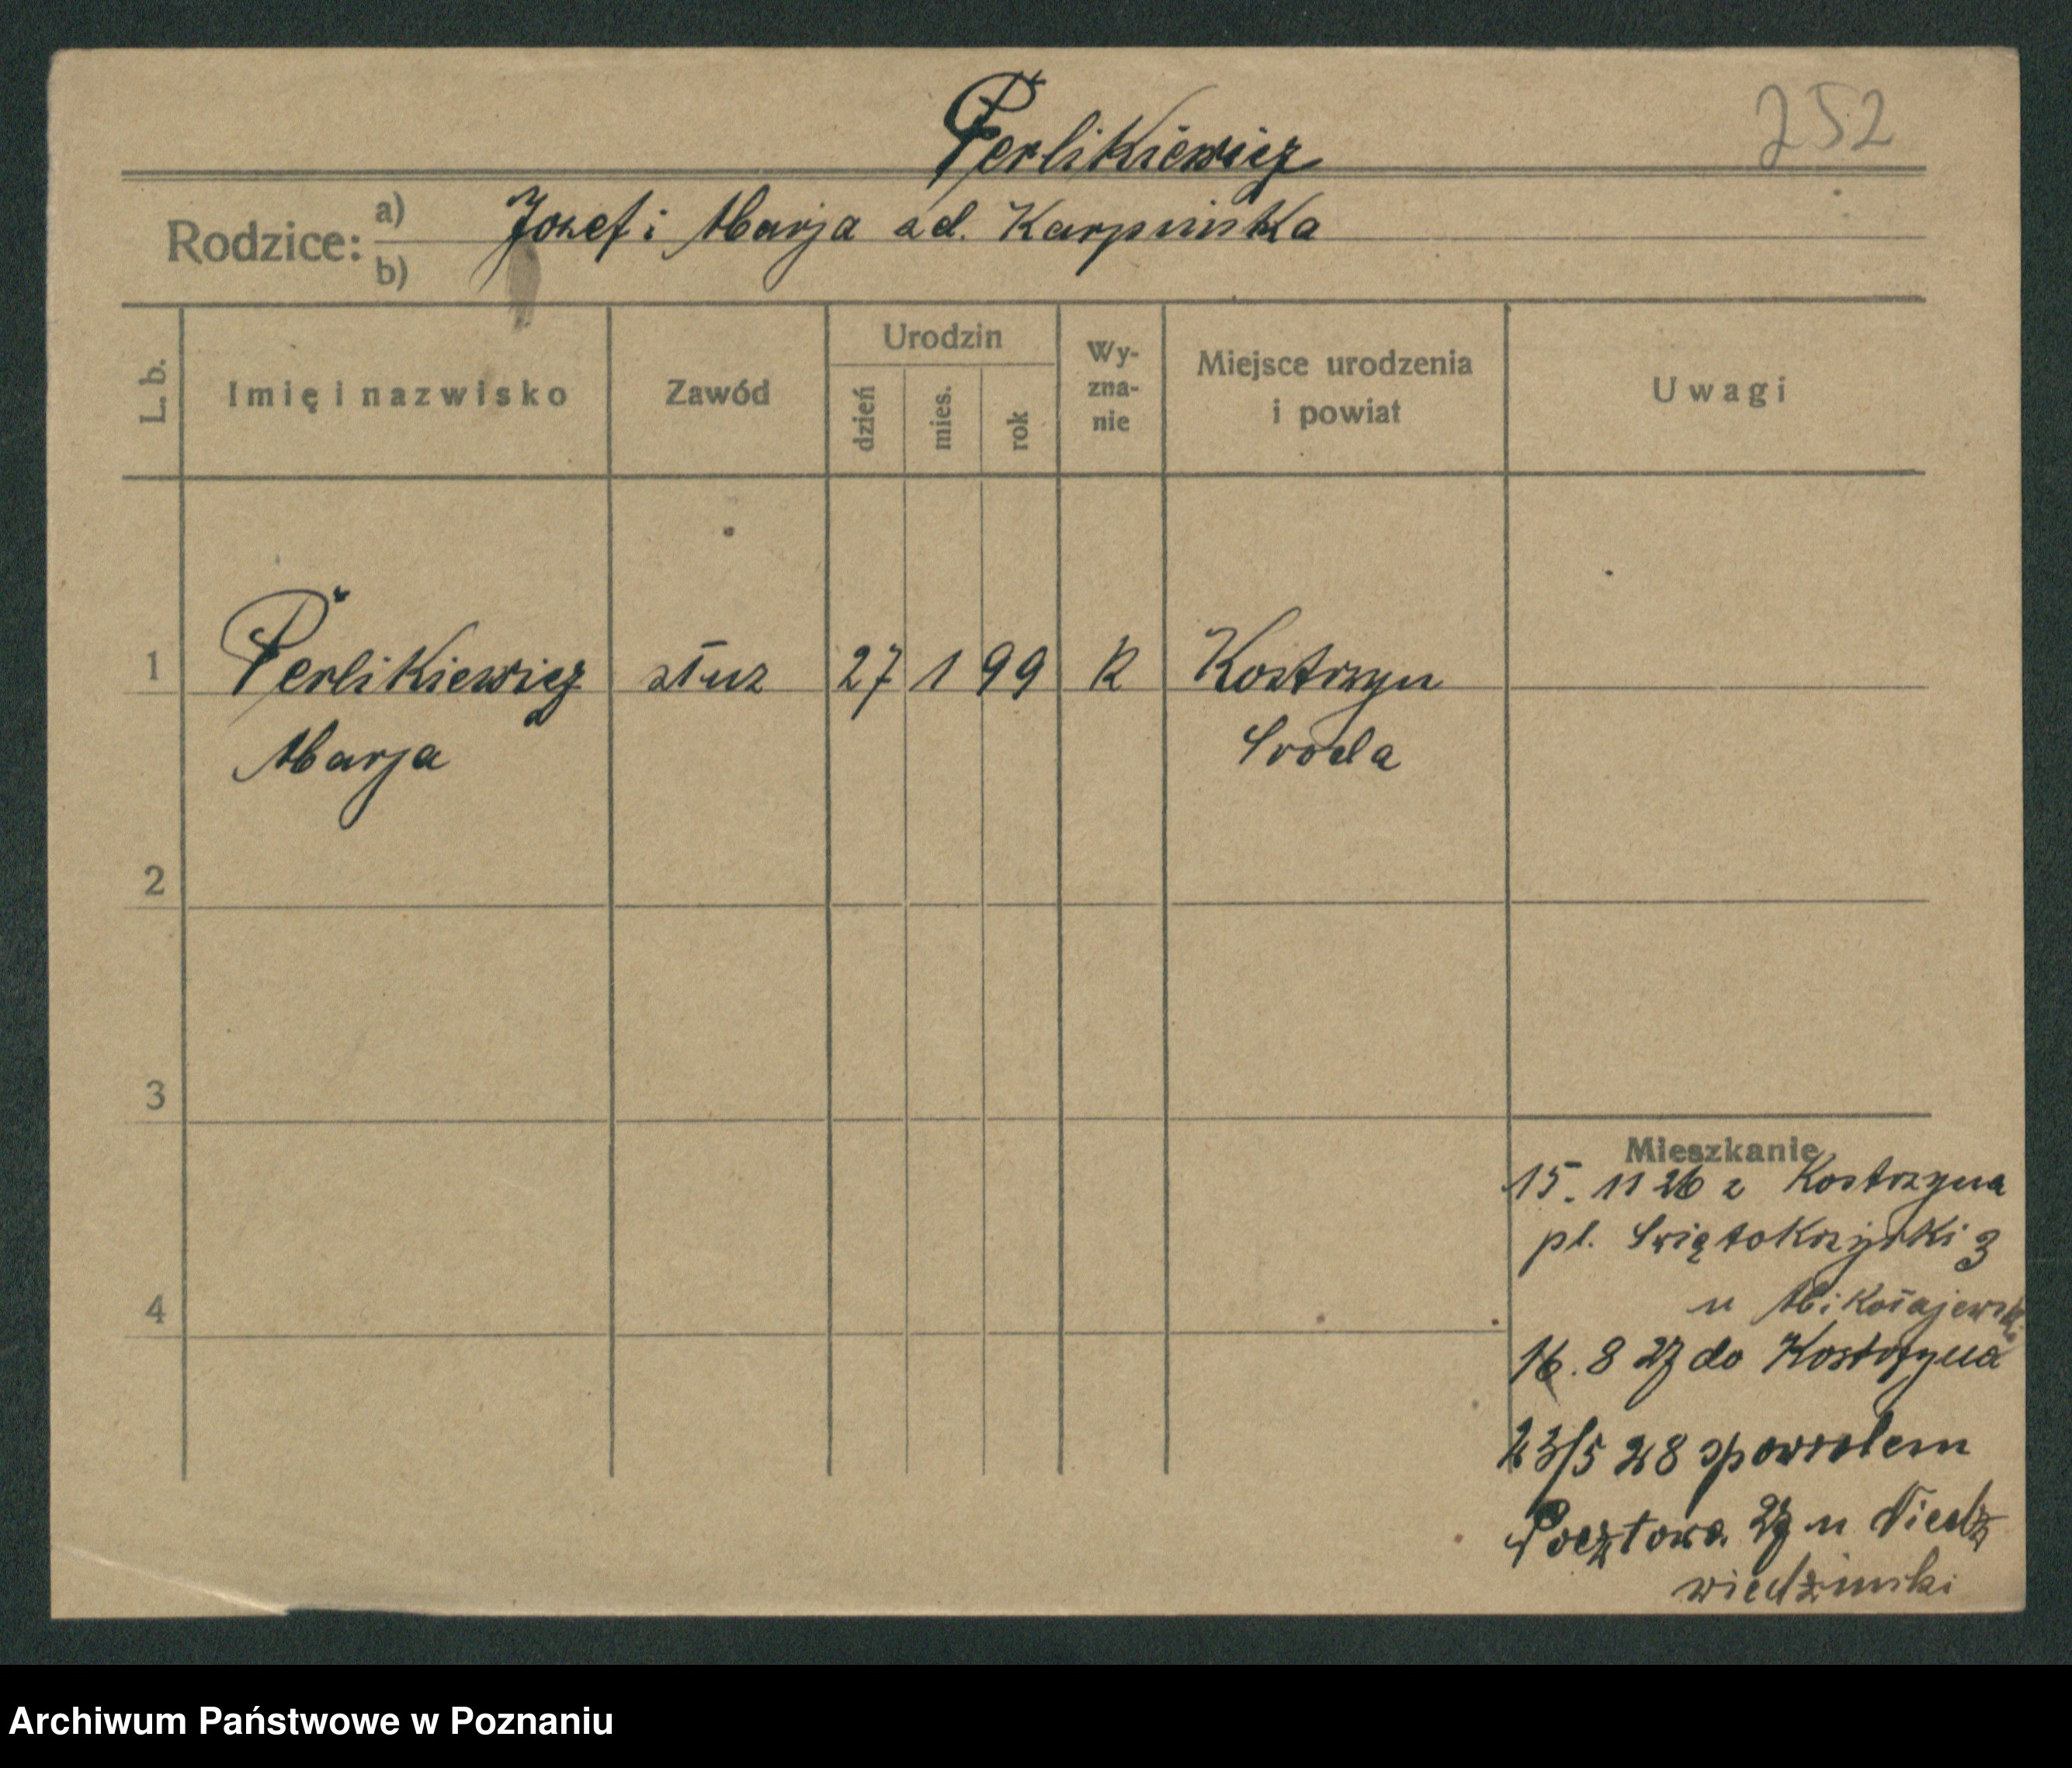 Perlikiewicz
252
Rodzice: a) Jozef i Marja zd. Karpinska
b)
L. b.
Imię i nazwisko
Zawód
Urodzin
dzień
mies.
rok
Wy-
zna-
nie
Miejsce urodzenia
i powiat
Uwagi
1 Perlikiewicz służ 27 1 99 R Kostrzyn
Marja Sroda
2
3
4
Mieszkanie
15. 11 26 z Kostrzyna
pl. Swiętokrzyski 3
u Mikołajewski
16. 8 27 do Kostrzyna
23/5 28 spowrotem
Pocztowa 27 u Niedz
wiedzinski
Archiwum Państwowe w Poznaniu